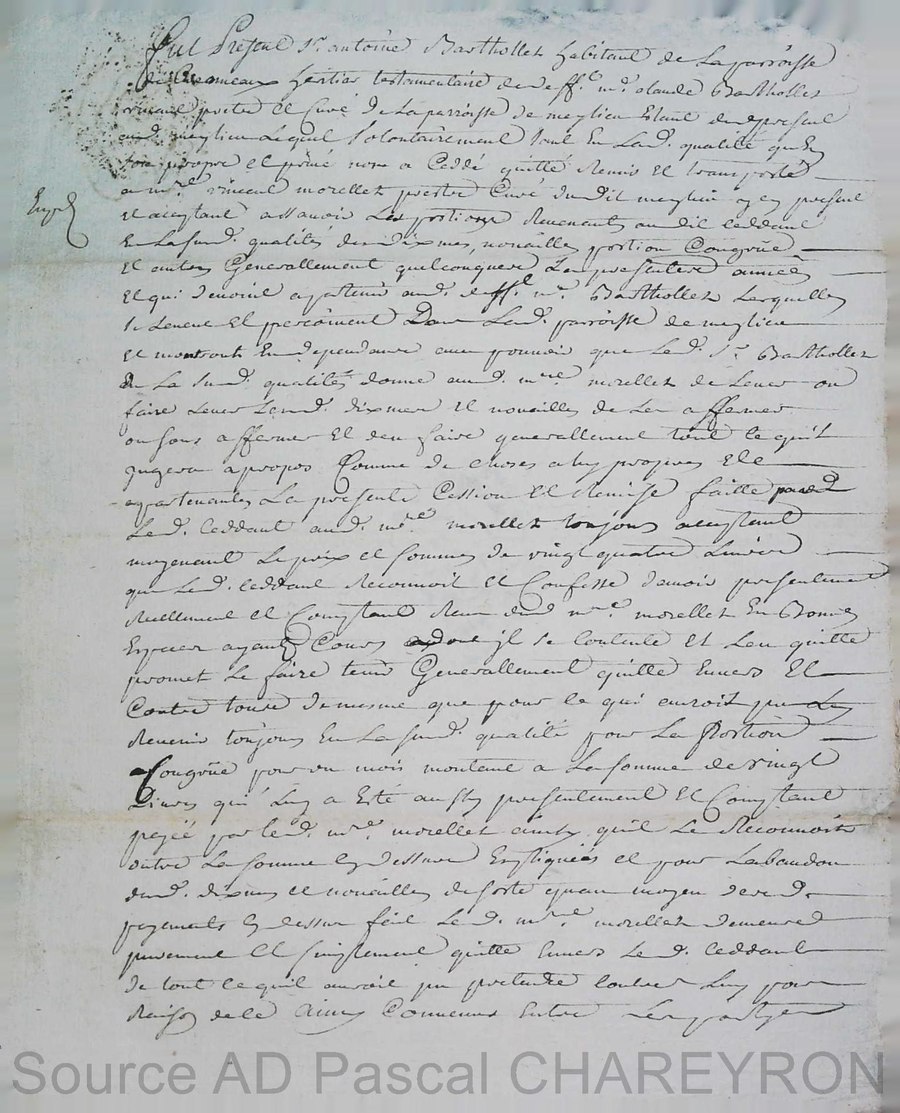 Fut Present Sr. antoine Barthollet habitant de La parroisse
de Cremeaux heritier testamentaire de defft. mre. claude Barthollet
vivant pretre et Curé de La parroisse de meylieu Estant de present
aud. meylieu Lequel Volontairement tant En Lad. qualité qu'En
son propre et privé nom a Ceddé quitté Remis Et transporté
a mre. vincent morellet prestre Curé dudit meylieu icy present
Et acceptant assavoir Les portions Revenants audit Ceddant
En La sud. qualités des dixmes, novailles portion Congrüe
Et autres Generallement quelconques La presente année
Et qui devoint apartenir aud. defft. mre. Barthollet Lesquelles
se Levent Et percoivent Dans Lad. parroisse de meylieu
Et montront En dependance avec pouvoir que Led. Sr. Barthollet
En La sud. qualités donne aud. mre. morellet de Lever ou
faire Lever Lesd. dixmes Et novailles de Les affermer
ou sous affermer Et d'en faire generallement tout Ce qu'il
jugera apropos Comme de choses a luy propres Et
appartenantes La presente Cession Et Remise faitte par
Led. Ceddant aud. mre. morellet toujours acceptant
moyenant Le prix et somme de vingt quatre Livres
que Led. Ceddant Reconnoit Et Confesse d'avoir presentement
Reellement et Comptant Receu dud. mre. morellet En Bonnes
Especes ayant Cours dont jl se Contente Et L'en quitte
promet Le faire tenir Generallement quitte Envers Et
Contre tous de mesme que pour Ce qui auroit pu Luy
Revenir toujours En La sud. qualité pour La Portion
Congrüe pour un mois montant a La somme de vingt
Livres qui Luy a Esté aussy presentement Et Comptant
payée par Led. mre. morellet ainsy qu'il Le Reconnoit
outre La somme Cy dessus Expliquées et pour Labandon
desd. dixmes et novailles de sorte quau moyen desd.
payements Cy dessus fait Led. mre. morellet demeure
purement Et simplement quitte Envers Led. Ceddant
de tout Ce quil auroit pu pretendre Contre Luy pour
Raison de Ce Ainsy Convenus Entre Les partyes
Source AD Pascal CHAREYRON